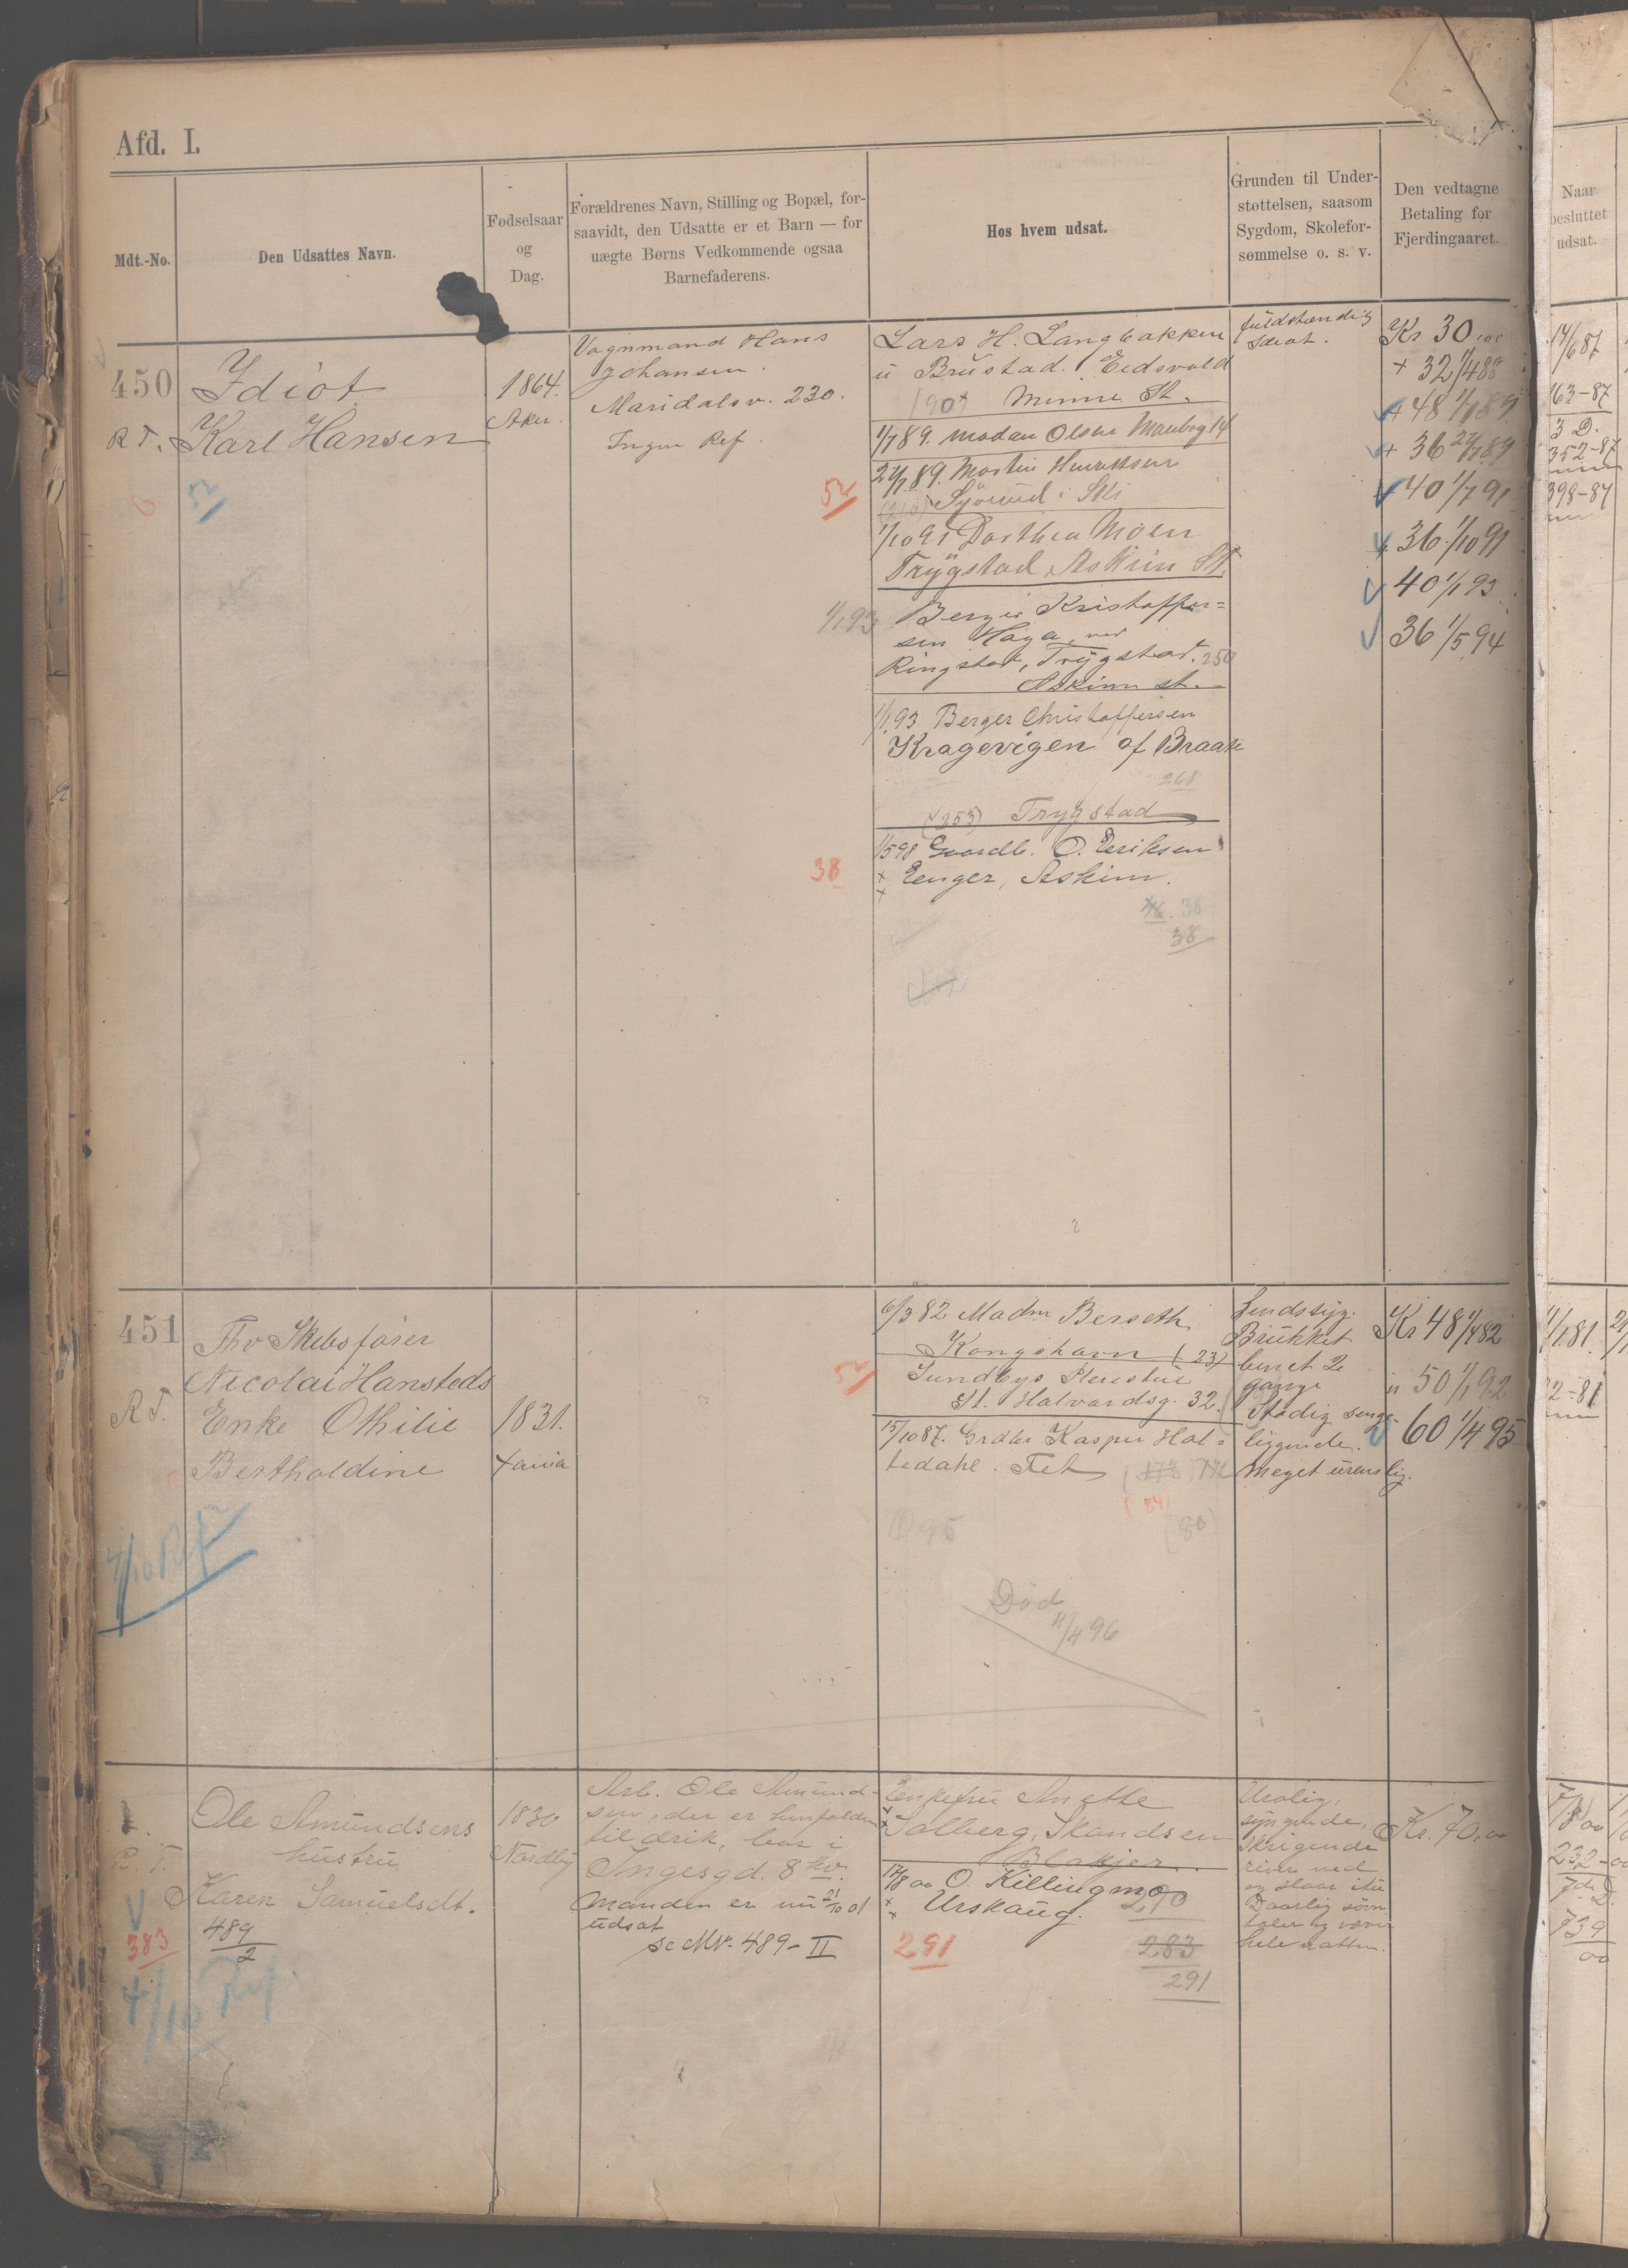 Afd. I.
Mdt.-No.
Den Udsattes Navn.
Fødselsaar
og
Dag.
Forældrenes Navn, Stilling og Bopæl, for-
saavidt, den Udsatte er et Barn — for
uægte Børns Vedkommende ogsaa
Barnefaderens.
Hos hvem udsat.
Grunden til Under-
støttelsen, saasom
Sygdom, Skolefor-
sømmelse o. s. v.
Den vedtagne
Betaling for
Fjerdingaaret.
Naar
besluttet
udsat.
450
R T.
Idiot
Karl Hansen
52
1864.
Aker.
Vognmand Hans
Johansen.
Maridalsv. 230.
Ingen Ref.
52
Lars H. Langbakken
u Brustad. Eidsvold
Minne St.
1/7 89. Madam Olsen 14
27/7 89. Martin
i Ski
1/10 91 Dorthea Moen
Trygstad Askim St.
1/1 93 Berger Kristoffer=
sen Haga, ved
Ringstad, Trygstad. 250
Askim st.
1/1 93 Berger Christoffersen
Kragevigen af Braate
268
(253) Trygstad
1/5 98 Gaardb. O. Eriksen
Eenger, Askim.
38
38
38
fuldstændig
Idiot.
Kr 30,00
+ 32 1/4 88
+ 48 1/7 89
+ 36 27/7 89
40 1/7 91
36 1/10 91
40 1/1 93
36 1/5 94
14/6 87
163-87
3 D.
352-87
398-87
451
R T.
Thv Skibsfører
Nicolai Hansteds
Enke Othilie
Bertholdine
1831.
Xania
7/10 Rf
6/3 82 Madm Berseth
Kongshavn (23)
Sundbys Pleiestue
St. Halvardsg. 32.
52
15/10 87. Grdbr Kasper Hol=
tedahl. Fet
(84)
(80)
95
Død
11/4 96
Sindssyg.
Brukket
benet 2
gange
Stadig senge-
liggende.
Meget urenslig.
Kr 48 1/4 82
" 50 1/1 92
60 1/4 95
1/1 81.
22-81
R. T.
383
Ole Amundsens
hustru
Karen Samuelsdt.
489
2
4/10 Rf.
1830
Nordby
Arb. Ole Amund-
sen, der er henfalden
til drik, bor i
Ingesgd. 8
Manden er nu 21/10 01
udsat
se Mr. 489-II
Enkefru Anette
Solberg, Skandsen
Blakjer.
17/8 00 O. Killingmo
Urskaug. 290
291
283
291
Urolig,
syngende,
skrigende
river ned
og slaar itu
Daarlig søvn
taler og væver
hele natten.
Kr. 70,00
7/8 00
232-00
7de D.
739
00